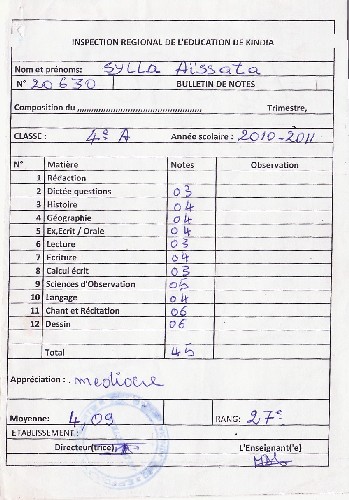 INSPECTION REGIONAL DE L'EDUCATION DE KINDIA
Nom et prénoms: SYLLA Aïssata
N° 20630 BULLETIN DE NOTES
Composition du Trimestre,
CLASSE : 4e A Année scolaire : 2010-2011
N° Matière Notes Observation
1 Rédaction
2 Dictée questions 03
3 Histoire 04
4 Géographie 04
5 Ex,Ecrit / Orale 04
6 Lecture 03
7 Ecriture 04
8 Calcul écrit 03
9 Sciences d'Observation 05
10 Langage 04
11 Chant et Récitation 06
12 Dessin 06
Total 45
Appréciation : mediocre
Moyenne: 4,09 RANG: 27e
ETABLISSEMENT :
Directeur(trice) L'Enseignant('e)